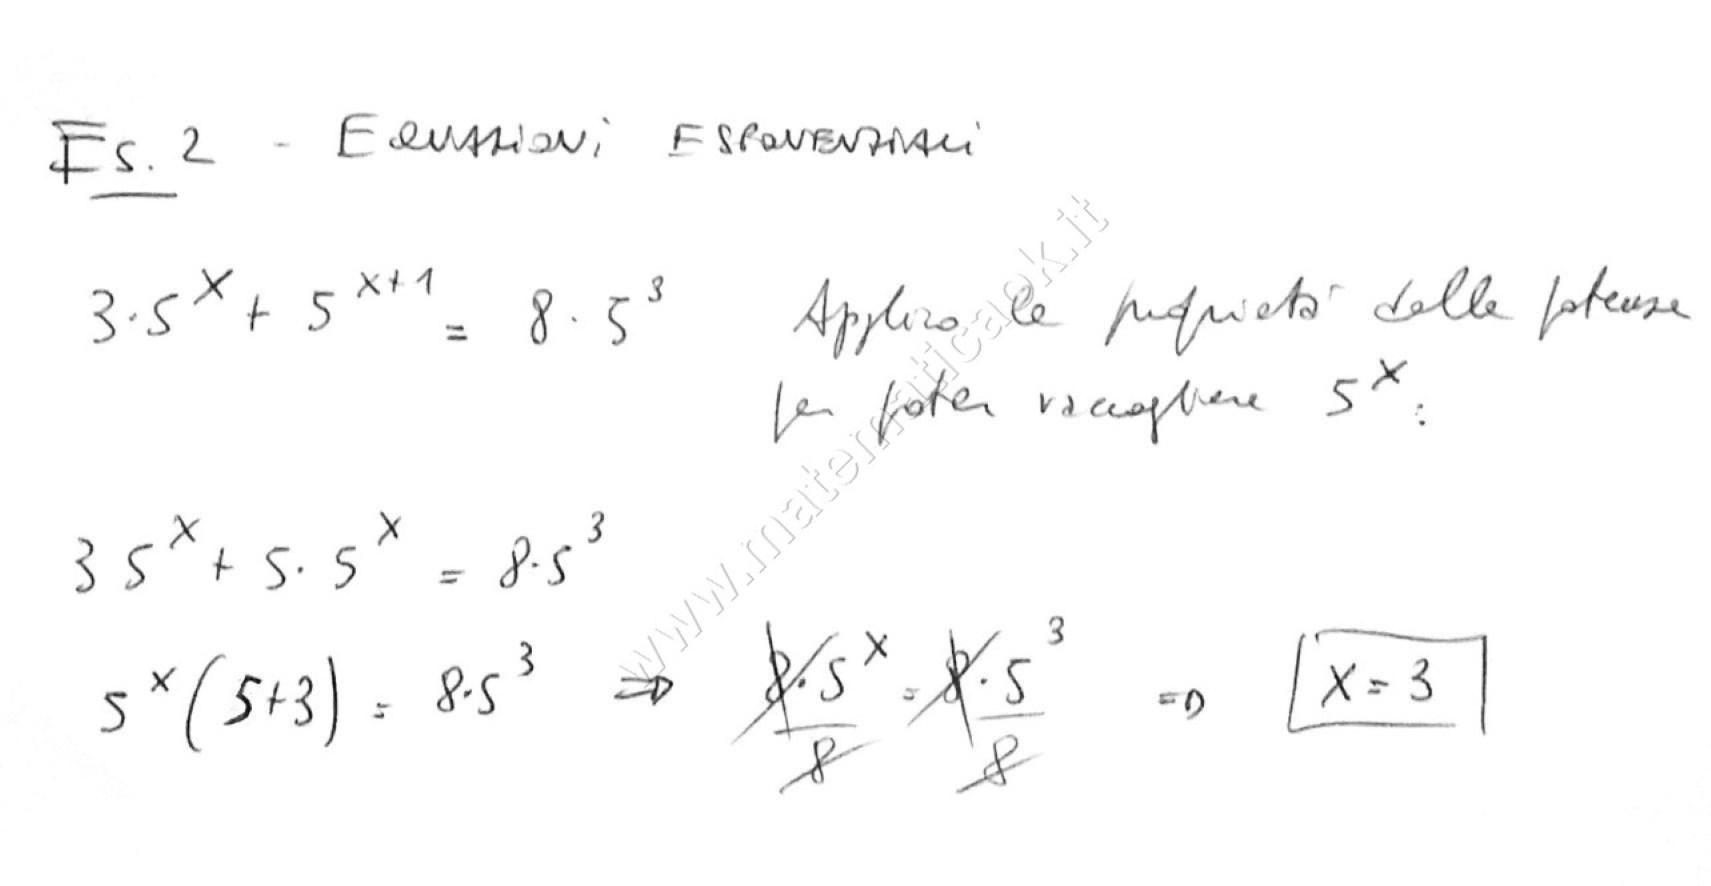 Es. 2 - EQUAZIONI ESPONENZIALI
3·5^x + 5^(x+1) = 8·5^3
Applico le proprietà delle potenze
per poter raccogliere 5^x :
3 5^x + 5·5^x = 8·5^3
5^x (5+3) = 8·5^3 ⇒ 8·5^x/8 = 8·5^3/8 ⇒ x = 3
www.matematicaok.it